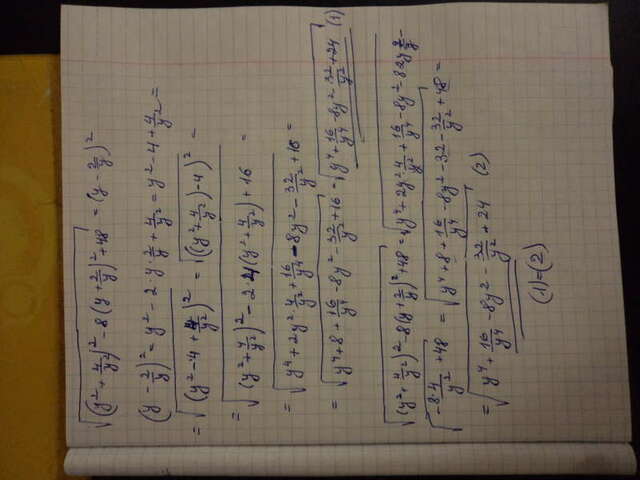 √((y² + 4/y²)² - 8(y + 2/y)² + 48) = (y - 2/y)²
(y - 2/y)² = y² - 2·y·2/y + 4/y² = y² - 4 + 4/y² =
= √((y² - 4 + 4/y²)²) = √(((y² + 4/y²) - 4)²) =
= √((y² + 4/y²)² - 2·4(y² + 4/y²) + 16 =
= √(y⁴ + 2y² 4/y² + 16/y⁴ - 8y² - 32/y² + 16 =
= √(y⁴ + 8 + 16/y⁴ - 8y² - 32/y² + 16 = √(y⁴ + 16/y⁴ - 8y² - 32/y² + 24 (1)
√((y² + 4/y²)² - 8(y + 2/y)² + 48 = √(y⁴ + 2y² 4/y² + 16/y⁴ - 8y² - 8·2y 2/y -
- 8·4/y² + 48 = √(y⁴ + 8 + 16/y⁴ - 8y² - 32 - 32/y² + 48 =
= √(y⁴ + 16/y⁴ - 8y² - 32/y² + 24 (2)
(1) = (2)